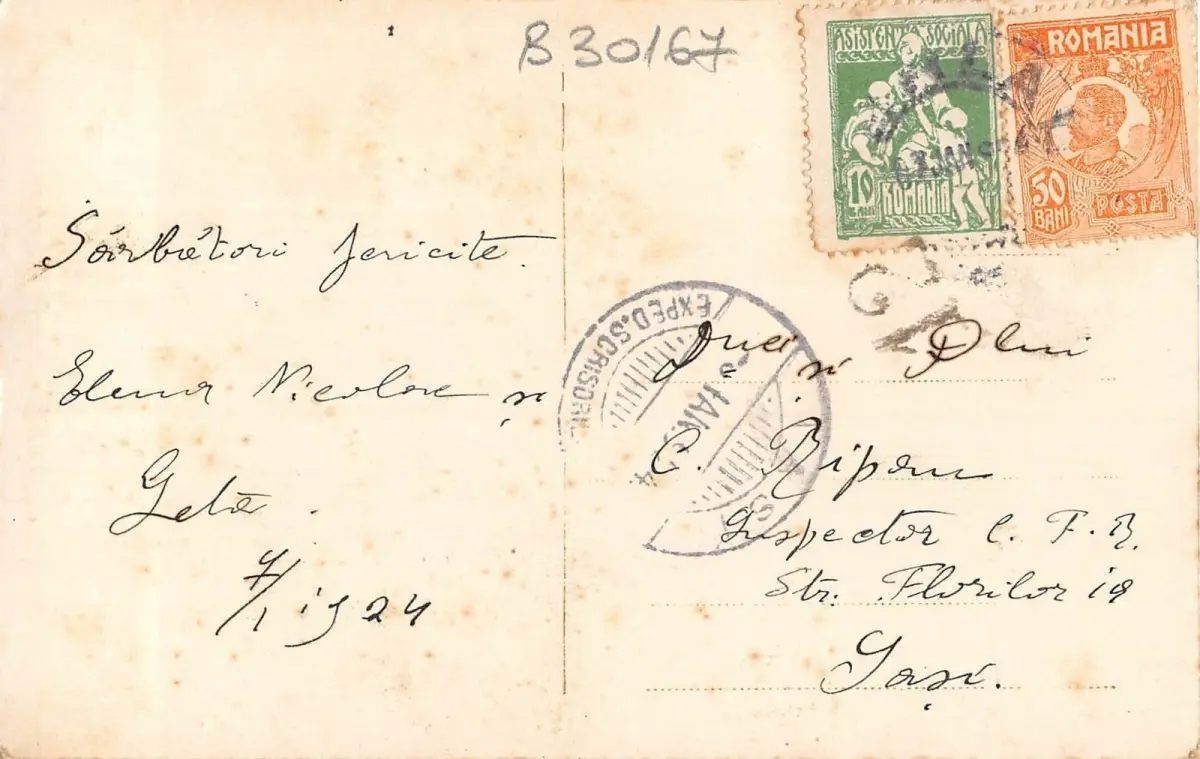 B 30167
ASISTENȚA SOCIALA
10
BANI
ROMANIA
ROMANIA
50
BANI
POSTA
Sărbători fericite.
Elena Nicolae și
Geta.
7/1 1924
EXPED. SCRISORI
IAN.
Dnei și Dlui
C. Rîpanu
Inspector C. F. R.
Str. Florilor 19
Iași.